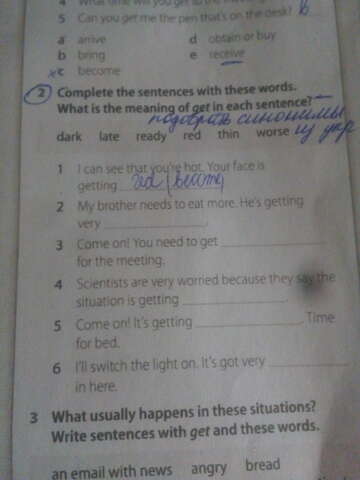 4 What time will you get to the
5 Can you get me the pen that's on the desk? b
a arrive d obtain or buy
b bring e receive
x c become
2 Complete the sentences with these words.
What is the meaning of get in each sentence?
подобрать синонимы
dark late ready red thin worse из упр
1 I can see that you're hot. Your face is
getting
2 My brother needs to eat more. He's getting
very ____________.
3 Come on! You need to get ____________
for the meeting.
4 Scientists are very worried because they say the
situation is getting ____________.
5 Come on! It's getting ____________. Time
for bed.
6 I'll switch the light on. It's got very ____________
in here.
3 What usually happens in these situations?
Write sentences with get and these words.
an email with news angry bread